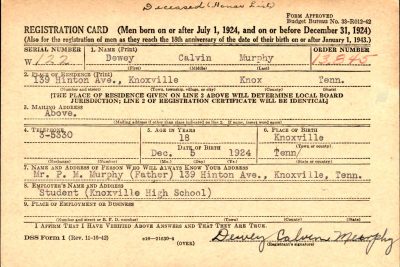 Deceased (Honor List)
FORM APPROVED
Budget Bureau No. 33-R012-42
REGISTRATION CARD (Men born on or after July 1, 1924, and on or before December 31, 1924)
(Also for the registration of men as they reach the 18th anniversary of the date of their birth on or after January 1, 1943.)
SERIAL NUMBER 1. NAME (Print) ORDER NUMBER
W 122 Dewey Calvin Murphy 13,845
(First) (Middle) (Last)
2. PLACE OF RESIDENCE (Print)
139 Hinton Ave., Knoxville Knox Tenn.
(Number and street) (Town, township, village, or city) (County) (State)
[THE PLACE OF RESIDENCE GIVEN ON LINE 2 ABOVE WILL DETERMINE LOCAL BOARD
JURISDICTION; LINE 2 OF REGISTRATION CERTIFICATE WILL BE IDENTICAL]
3. MAILING ADDRESS
Above.
[Mailing address if other than place indicated on line 2. If same, insert word same]
4. TELEPHONE 5. AGE IN YEARS 6. PLACE OF BIRTH
3-5330 18 Knoxville
DATE OF BIRTH (Town or county)
Dec. 5 1924 Tenn.
(Exchange) (Number) (Mo.) (Day) (Yr.) (State or country)
7. NAME AND ADDRESS OF PERSON WHO WILL ALWAYS KNOW YOUR ADDRESS
Mr. P. M. Murphy (Father) 139 Hinton Ave., Knoxville, Tenn.
8. EMPLOYER'S NAME AND ADDRESS
Student (Knoxville High School)
9. PLACE OF EMPLOYMENT OR BUSINESS
(Number and street or R. F. D. number) (Town) (County) (State)
I AFFIRM THAT I HAVE VERIFIED ABOVE ANSWERS AND THAT THEY ARE TRUE.
DSS Form 1 (Rev. 11-16-42) 16-21630-6 Dewey Calvin Murphy
(OVER) (Registrant's signature)